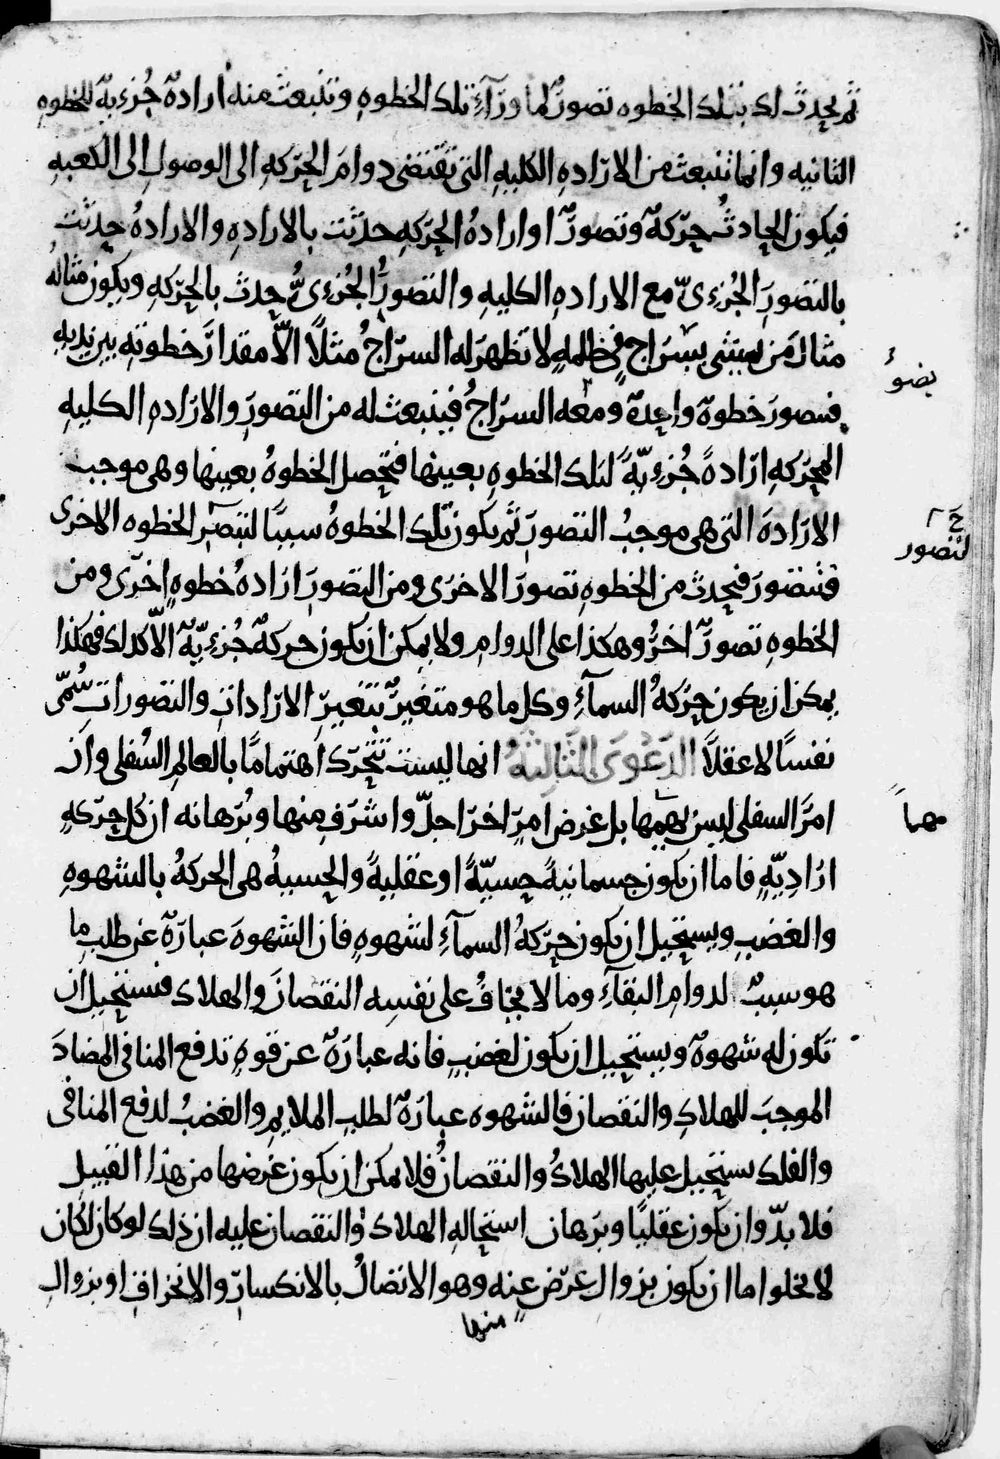 ثم يحدث لك بتلك الخطوه تصورٌ لما ورآء تلك الخطوه وتنبعث منه ارادةٌ جُزءيةٌ للخطوهِ
الثانيه وانما تنبعث من الارادهِ الكليهِ التى تقتضى دوامَ الحرّكهِ الى الوصولِ الى الكعبهِ
فيكون الحادثُ حرّكةٌ وتصورٌ وارادهُ الحرّكهِ حدثت بالارادهِ والارادهُ حدثت
بالتصورِ الجُزءىّ مع الارادهِ الكليهِ والتصورُ الجُزءىُّ حدث بالحرّكهِ ويكون مثالهُ
مثال من يمشى بسراجٍ فى ظلمهٍ لا تظهرَ له السرّاجُ مثلاً الاّ مقدارَ خطوتهِ بين يديهِ
فيتصورَ خطوةً واحدةً ومعه السرّاجُ فينبعث له من التصورِ والارادهِ الكليهِ
للحرّكهِ ارادةً جُزءيةً لتلك الخطوهِ بعينها فتحصل الخطوهُ بعينها وهى موجبُ
الارادهَ التى هى موجبُ التصورِ ثم يكون تلك الخطوهُ سببًا لتبصّر الخطوه الاخرى
فتتصورَ فيحدث من الخطوهِ تصورَ الاخرى ومن التصورِ ارادهُ خطوهٍ اخرى ومن
الخطوهِ تصورٌ اخرُ وهكذا على الدوامِ ولا يمكن ان يكون حركةٌ جُزءيّةٌ الاّ كذلك فهكذا
يمكن ان يكون حرّكهُ السمآءِ وكل ما هو متغيرٌ بتغيرِ الارادات والتصورات سُمّى
نفسًا لا عقلاً الدَعوَى الثَالِثَهُ انها ليست تتحرّك اهتمامًا بالعالمِ السُفلى وان
امرَ السفلى ليس يهمها بل غرض امرٍ اخرَ اجلّ واشرَف منها وبُرّهانه ان كل حرّكهٍ
ارَاديّهٍ فاما ان يكون جسمانيةً حسيّةً او عقليةً والحسيهُ هى الحركهُ بالشهوهِ
والغضبِ ويستحيل ان يكون حرّكهُ السمآءِ لشهوهٍ فان الشهوهَ عبارةٌ عن طلب ما
هو سببٌ لدوام البقآءِ وما لا يخافُ على نفسِه النقصانَ والهلاك فيستحيل ان
تكون له شهوةٌ ويستحيل ان يكون لغضبٍ فانه عبارةٌ عن قوهٍ تدفع المنافى المضادَ
الموجبَ للهلاكِ والنقصان فالشهوه عبارةٌ لطلبِ الملايمِ والغضبُ لدفع المنافى
والفلك يستحيل عليها الهلاكُ والنقصانُ فلا يمكن ان يكون غرضها من هذا القبيل
فلا بدّ وان يكون عقليًا وبرهان استحاله الهلاك والنقصان عليه ان ذلك لو كان لكان
لا يخلوا اما ان يكون بزوال عرَض عنه وهو الانفصالُ بالانكسارِ والانخراقِ او بزوالِ
منها
بضوءٍ
خ
لتصور
مهما